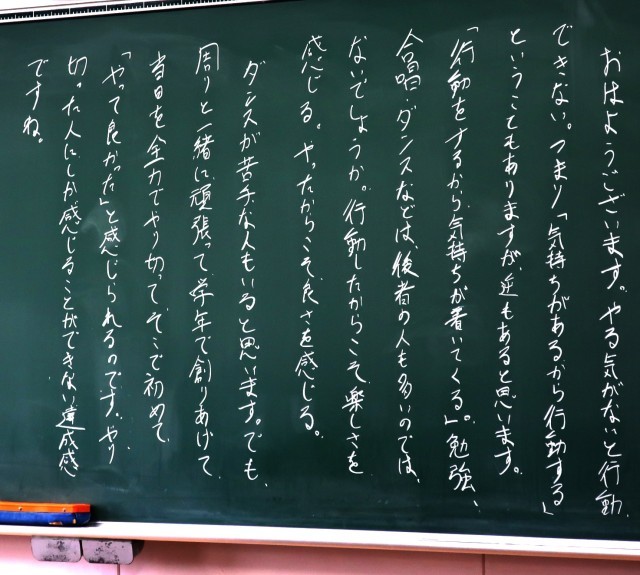 おはようございます。やる気がないと行動
できない。つまり「気持ちがあるから行動する」
ということもありますが、逆もあると思います。
「行動をするから気持ちが着いてくる。」勉強、
合唱、ダンスなどは、後者の人も多いのでは
ないでしょうか。行動したからこそ、楽しさを
感じる。やったからこそ、良さを感じる。
ダンスが苦手な人もいると思います。でも、
周りと一緒に頑張って、学年で創りあげて、
当日を全力でやり切って、そこで初めて、
「やって良かった」と感じられるのです。やり
切った人にしか感じることができない達成感
ですね。